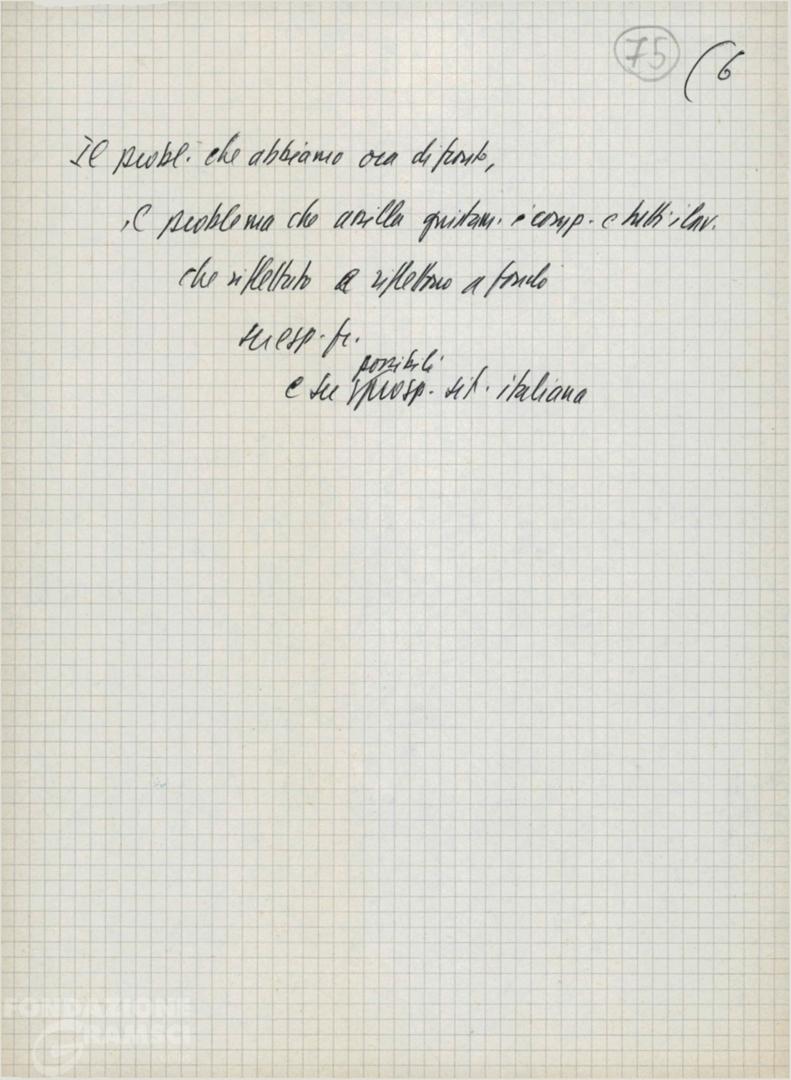 75 (6
Il probl. che abbiamo ora di fronte,
il problema che assilla giustam. i comp. e tutti i lav.
che riflettuto e riflettono a fondo
su esp. fr.
possibili
e su prosp. sit. italiana
FONDAZIONE
GRAMSCI